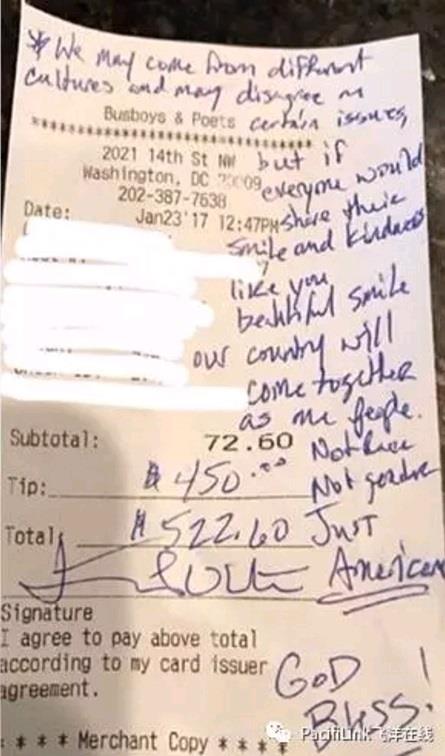 * We may come from different
cultures and may disagree on
Busboys & Poets certain issues,
********************************
2021 14th St NW but if
Washington, DC 20009 everyone would
202-387-7638
Date: Jan23'17 12:47PM share their
smile and kindness
like you
beautiful smile
our country will
come together
as one people.
Subtotal: 72.60 Not Race
Tip: $450.00 Not gender
Total: $522.60 Just
American
Signature
I agree to pay above total
according to my card issuer
agreement.
GOD
Bless!
* * * * Merchant Copy * * * *
PacifiLink飞洋在线